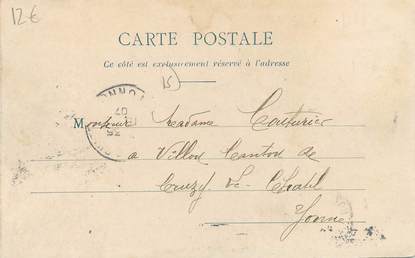 12€
CARTE POSTALE
Ce côté est exclusivement réservé à l'adresse
15
Monsieur Madame Couturier
a Villon Canton de
Cruzy le Chatel
Yonne